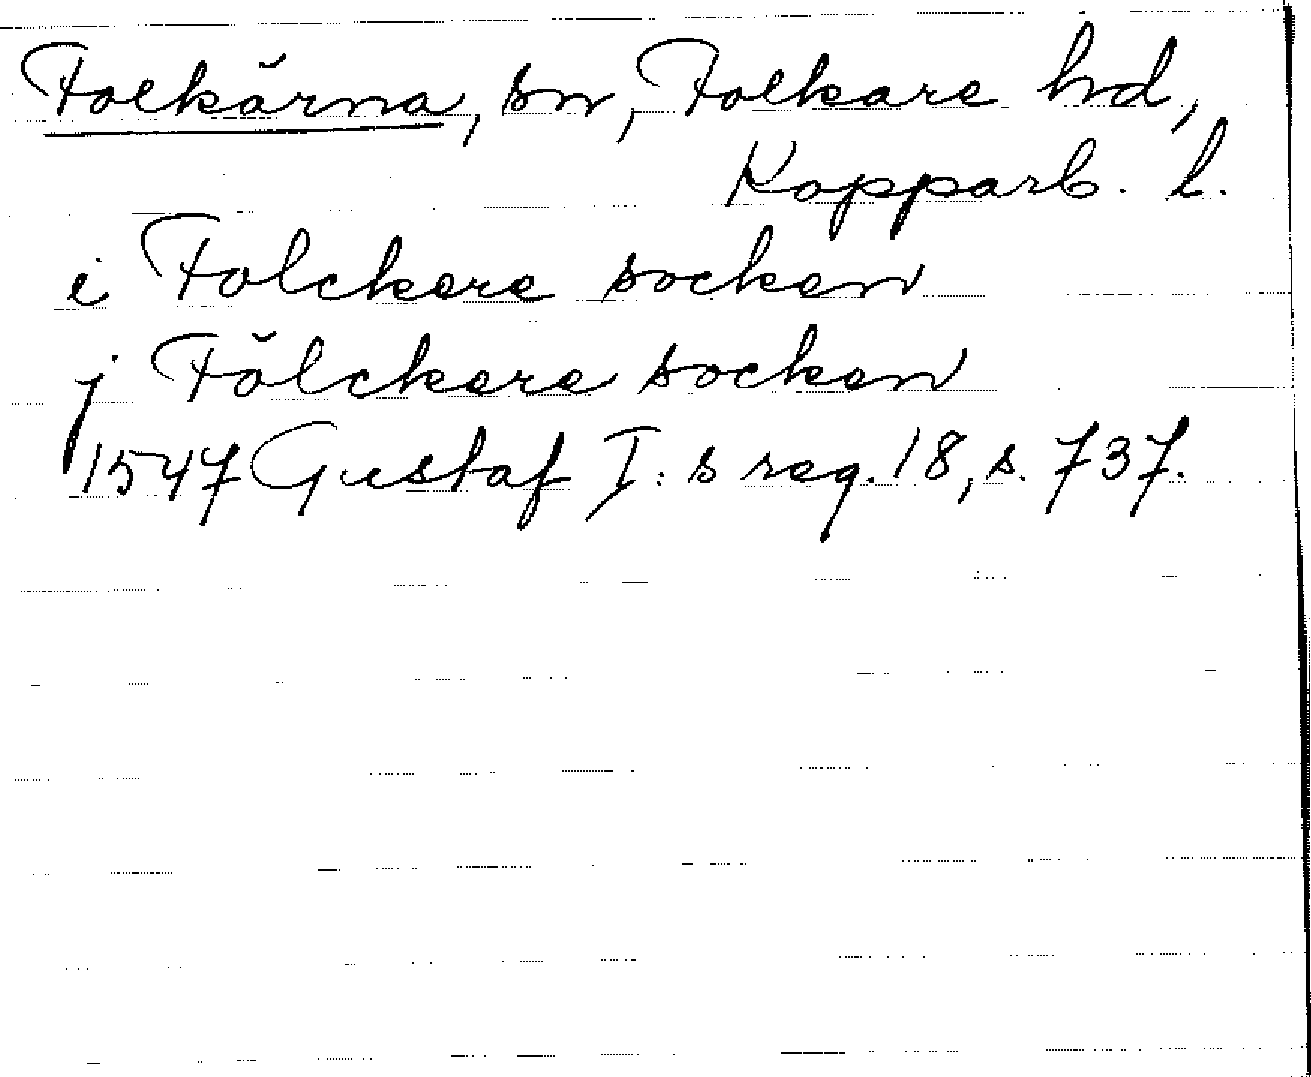 Folkärna, sn, Folkare hd,
Kopparb. l.
i Folckere socken
j Fölckere socken
1547 Gustaf I:s reg. 18, s. 737.